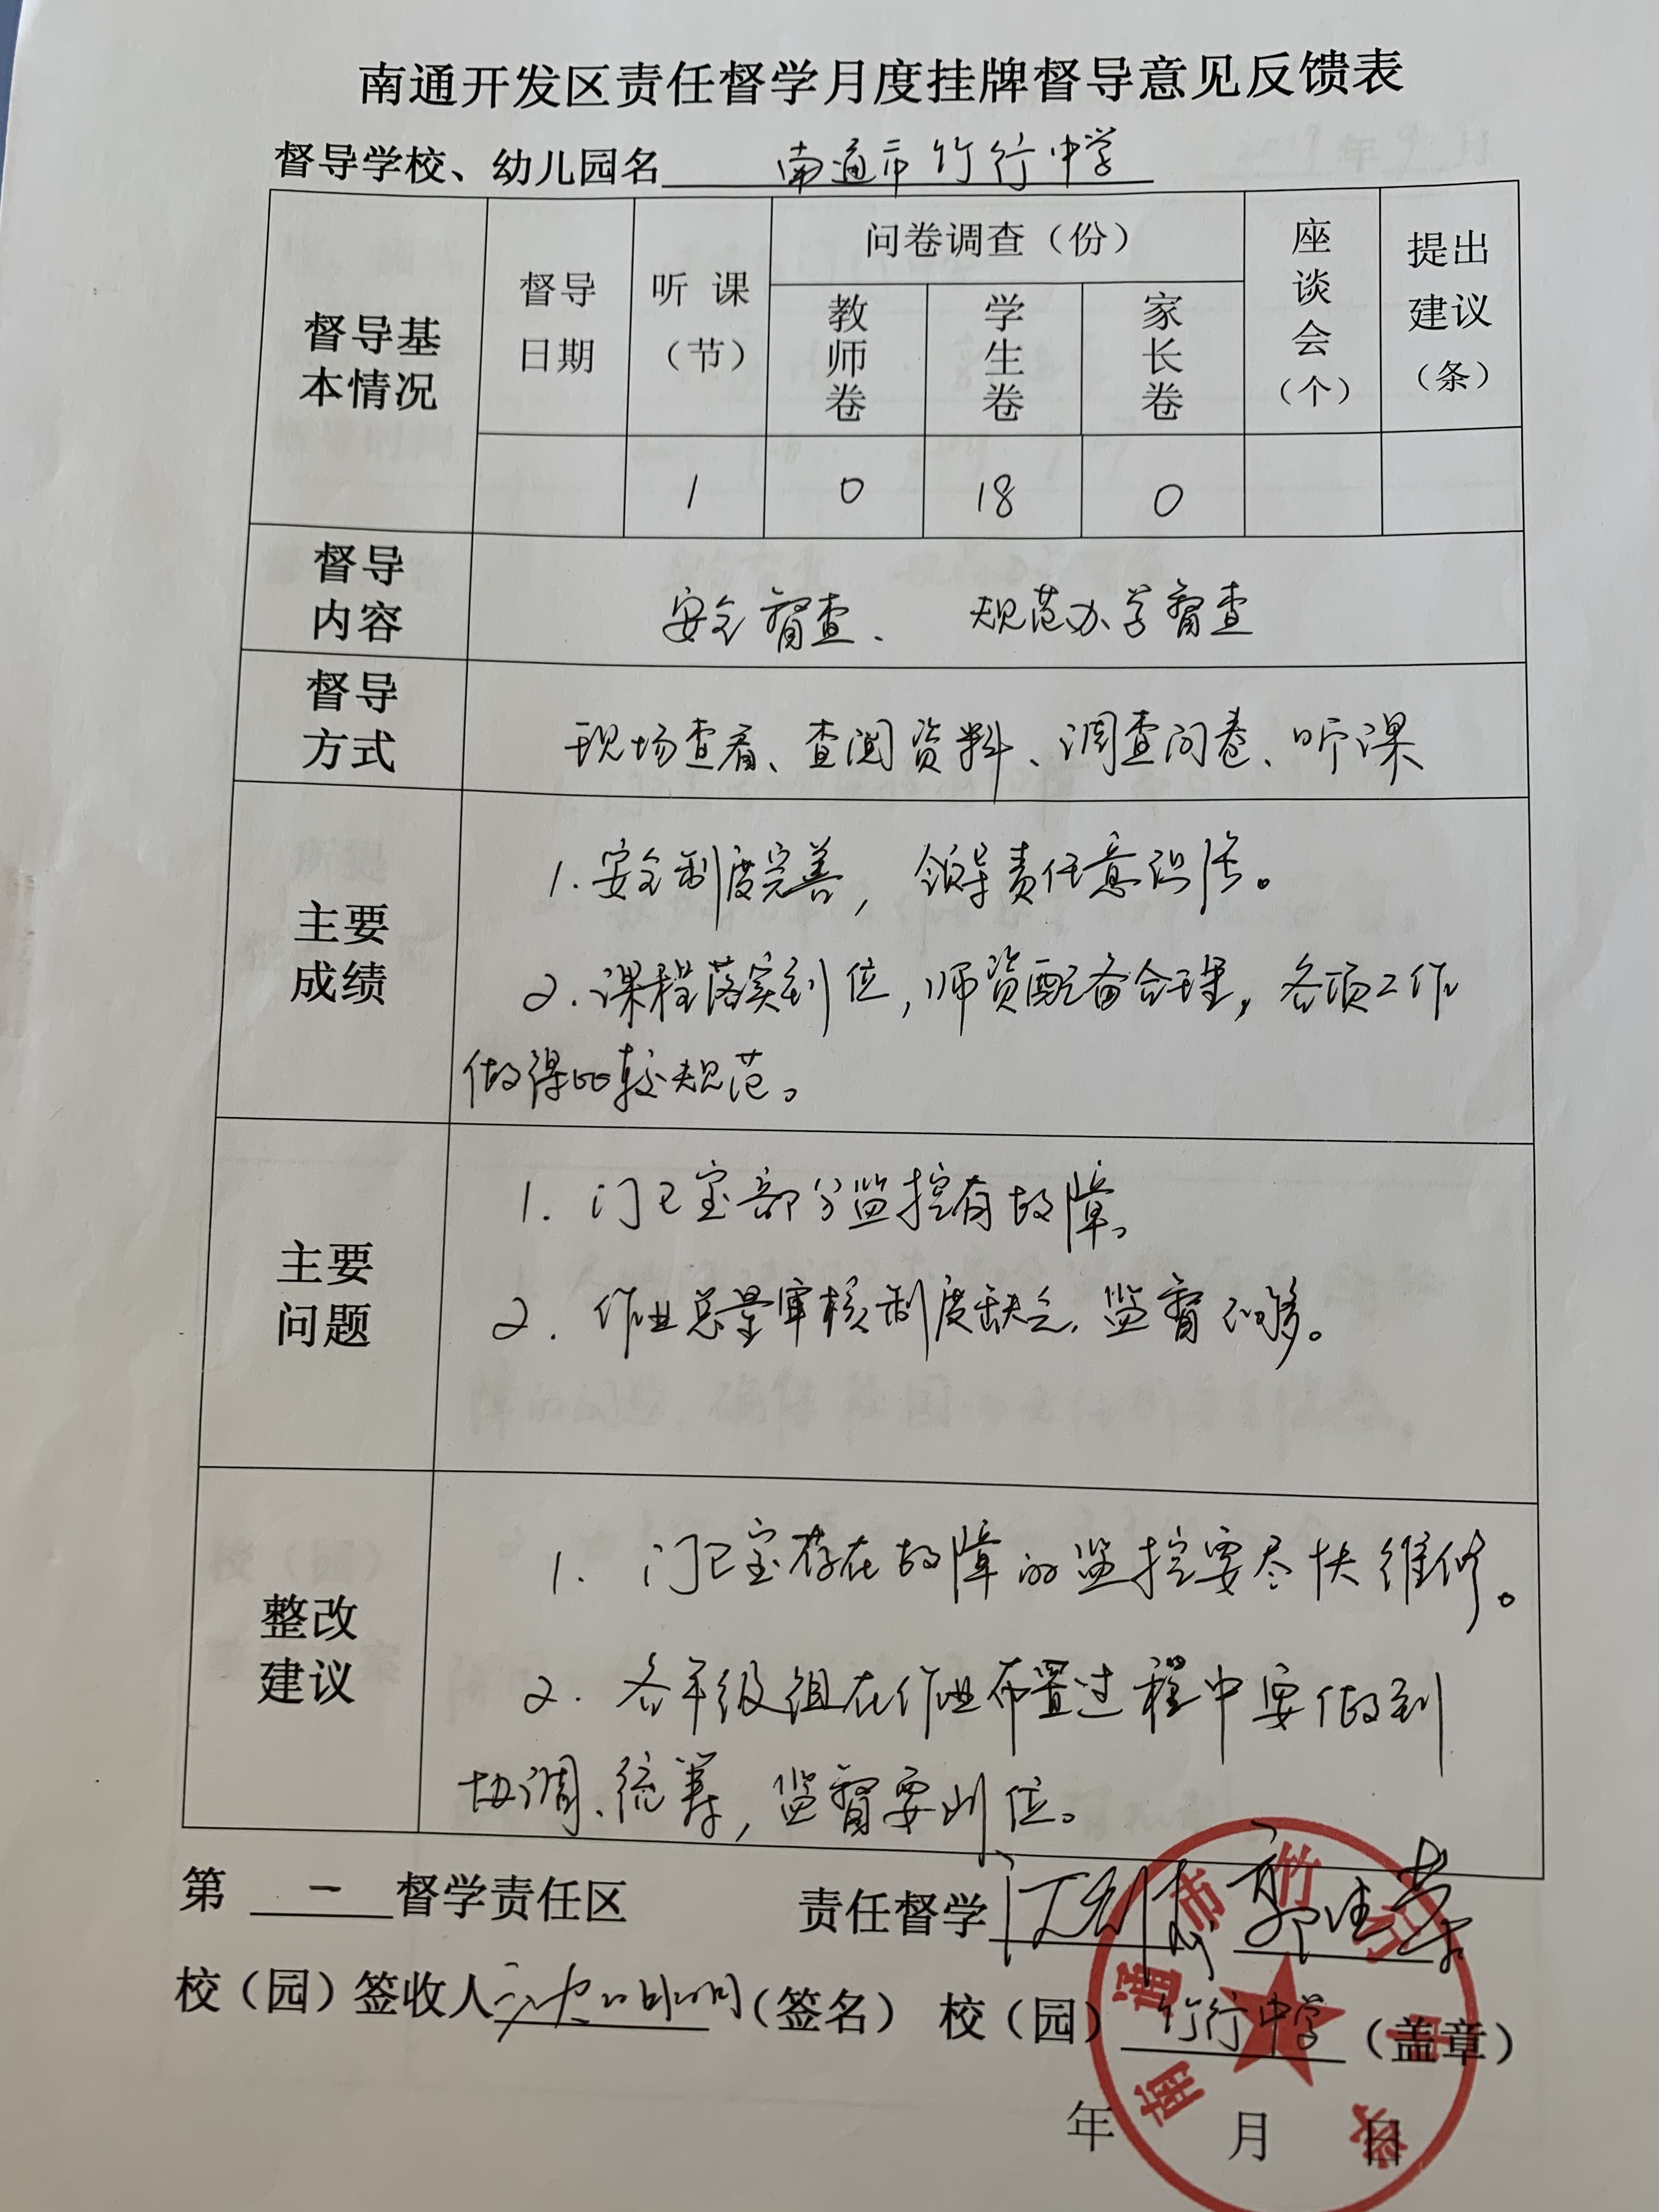 南通开发区责任督学月度挂牌督导意见反馈表
督导学校、幼儿园名 南通市竹行中学
督导基本情况
督导日期
听课（节）
问卷调查（份）
教师卷
学生卷
家长卷
座谈会（个）
提出建议（条）
1 0 18 0
督导内容
安全督查、 规范办学督查
督导方式
现场查看、查阅资料、调查问卷、听课
主要成绩
1.安全制度完善，领导责任意识强。
2.课程落实到位，师资配备合理，各项工作
做得比较规范。
主要问题
1.门卫室部分监控有故障。
2.作业总量审核制度缺乏，监督不够。
整改建议
1.门卫室存在故障的监控要尽快维修。
2.各年级组在作业布置过程中要做到
协调、统筹，监督要到位。
第 一 督学责任区 责任督学
校（园）签收人 （签名） 校（园） 竹行中学 （盖章）
年 月 日
南通市竹行中学